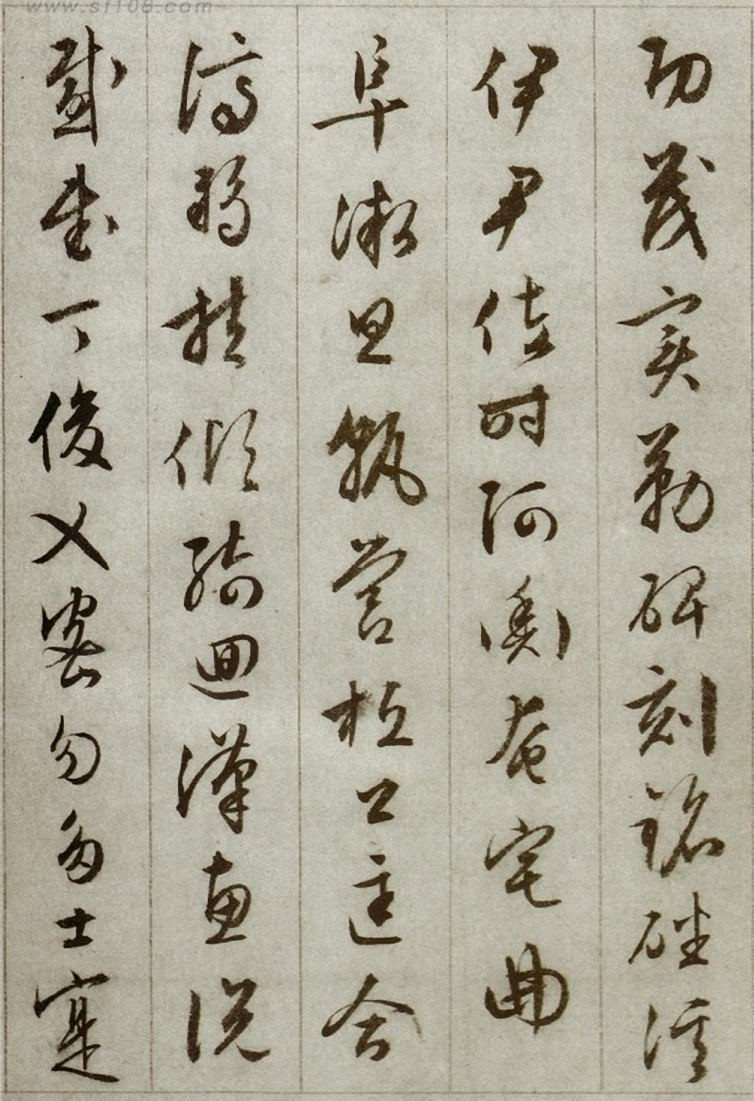 www.sf108.com
功茂實勒碑刻銘磻溪
伊尹佐時阿衡奄宅曲
阜微旦孰營桓公匡合
濟弱扶傾綺迴漢惠説
感武丁俊乂密勿多士寔